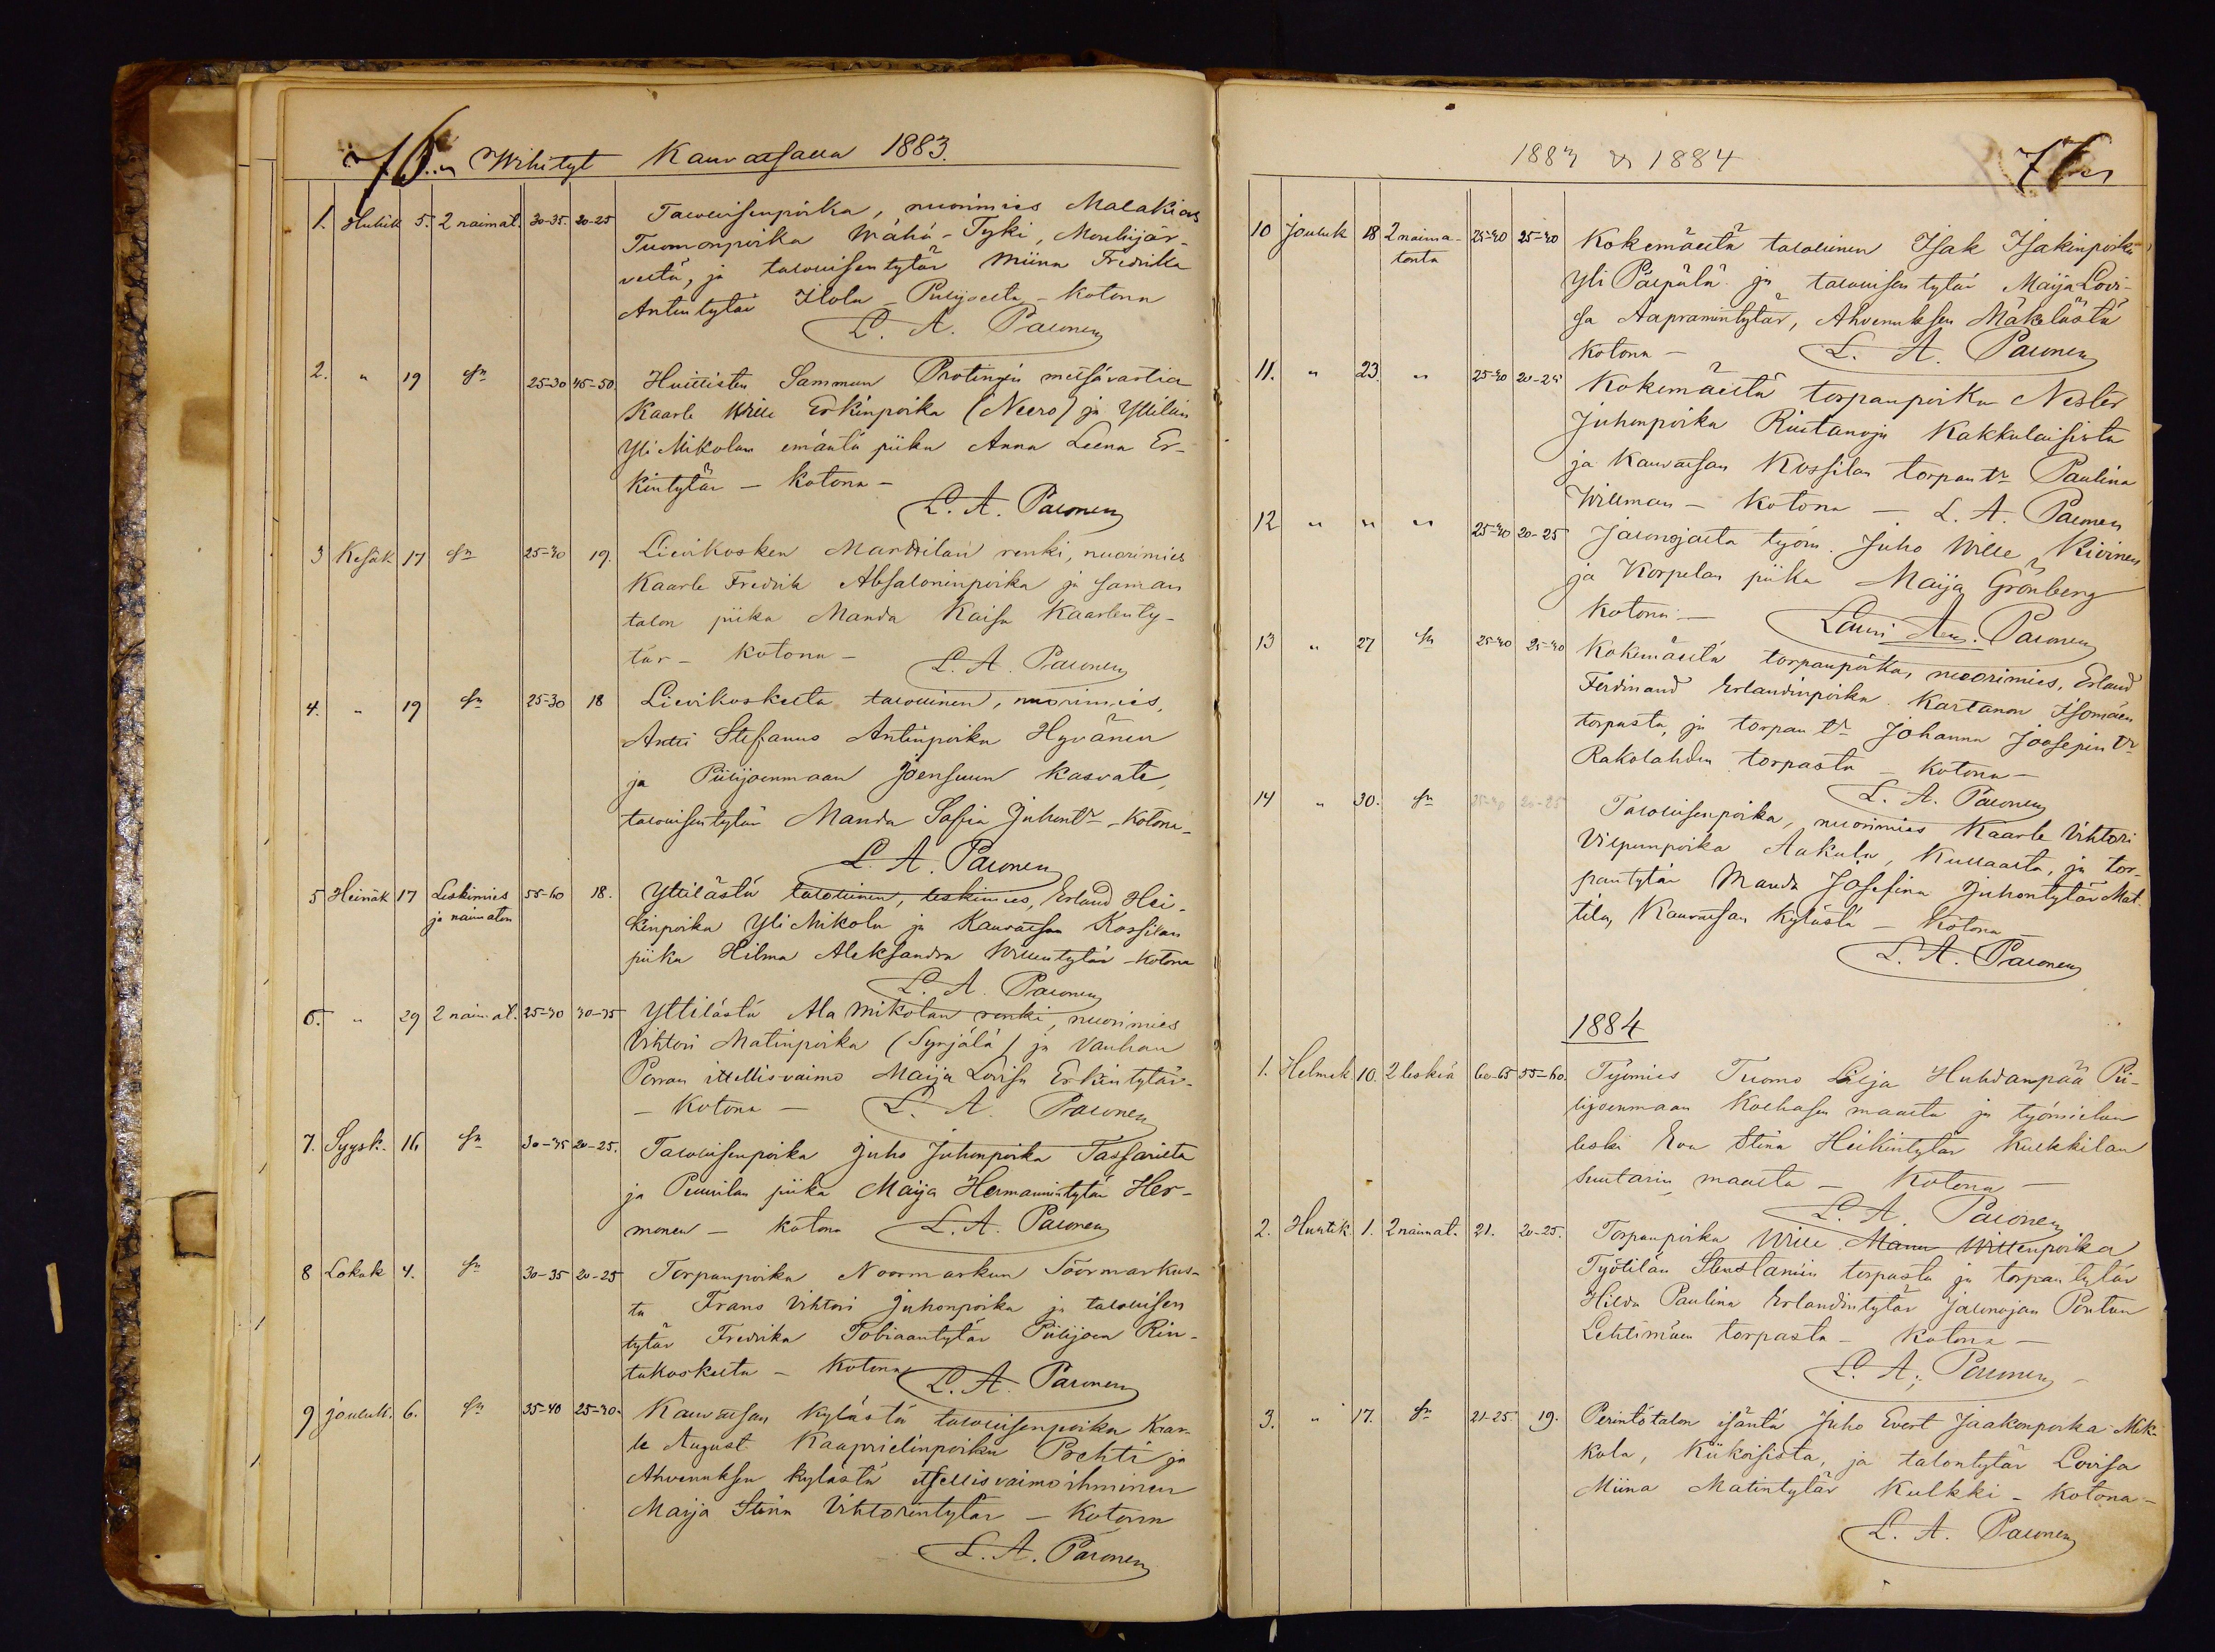 76
Wihityt Kauvatsalla 1883.
1. Huhtik 5. 2 naimat. 30-35. 20-25 Talollisenpoika, nuorimies Malakias
Tuomonpoika Wähä-Tyki, Mouhijär-
veltä, ja talollisen tytär Miina Fredrika
Antintytär Ilola - Piilijoelta - kotona
L. A. Palonen
2. " 19 sn 25-30 45-50. Huittisten Sammun Protingin metsävartia
Kaarle Wille Erkinpoika (Neero) ja Yttilän
Yli Mikolan emäntä piika Anna Leena Er-
kintytär - kotona -
L. A. Palonen
3 Kesäk 17 sn 25-30 19. Lievikosken Marttilan renki, nuorimies
Kaarle Fredrik Absaloninpoika ja saman
talon piika Manda Kaisa Kaarlenty-
tär - kotona -
L. A. Palonen
4. " 19 sn 25-30 18 Lievikoskelta talollinen, nuorimies,
Antti Stefanus Antinpoika Hyvänen
ja Piilijoenmaan Joensuun kasvate,
talollisen tytär Manda Sofia Juhontr - Kotona -
L. A. Palonen
5 Heinäk 17 Leskimies
ja naimaton 55-60 18. Yttilästä talollinen, leskimies, Erland Hei-
kinpoika Yli Mikola ja Kauvatsan Kossilan
piika Hilma Aleksandra Willentytär - kotona
L. A. Palonen
6. " 29 2 naimat. 25-30 30-35 Yttilästä Ala Mikolan renki, nuorimies
Vihtori Matinpoika (Syrjälä) ja Vanhan
Porran ittellisvaimo Maija Lovisa Erkintytär-
- Kotona - L. A. Palonen
7. Syysk. 16 sn 30-35 20-25. Talollisenpoika Juho Juhonpoika Tassarista
ja Puurilan piika Maija Hermannintytär Her-
monen - kotona L. A. Palonen
8 Lokak 4. sn 30-35 20-25 Torpanpoika Noormarkun Söörmarkus-
ta Frans Vihtori Juhonpoika ja talollisen
tytär Fredrika Tobiaantytär Piilijoen Rin-
takoskelta - Kotona L. A. Palonen
9 jouluk. 6. sn 35-40 25-30. Kauvatsan kylästä talollisenpoika Kaar-
le August Kaaprielinpoika Prehti ja
Ahvenuksen kylästä itsellisvaimoihminen
Maija Stiina Vihtorintytär - Kotona
L. A. Palonen
1883 & 1884
77
10 Jouluk 18 2 naima-
tonta 25-30 25-30 Kokemäeltä talollinen Isak Isakinpoika
Yli Päipälä ja talollisen tytär Maija Lovi-
sa Aapramintytär, Ahvenuksen Mäkelästä
kotona - L. A. Palonen
11. " 23. " 25-30 20-25 Kokemäeltä torpanpoika Nestor
Juhonpoika Riutanoja Kakkulaisista
ja Kauvatsan Kossilan torpan tr Paulina
Willman - Kotona - L. A. Palonen
12 " " " 25-30 20-25 Jalonojasta työm. Juho Wille Kivinen
ja Korpelan piika Maija Grönberg
kotona - Lauri Aug. Palonen
13 " 27 sn 25-30 25-30 Kokemäeltä torpanpoika, nuorimies, Erland
Ferdinand Erlandinpoika Kartanon Isomäen
torpasta, ja torpan tr Johanna Joosepin tr
Rakolahden torpasta - kotona -
L. A. Palonen
14 " 30. sn 25-30 20-25 Talollisenpoika, nuorimies Kaarle Vihtori
Vilpunpoika Aakula, Kullaalta, ja tor-
pantytär Manda Josefina Juhontytär Mat-
tila, Kauvatsan kylästä - Kotona
L. A. Palonen
1884
1. Helmik 10. 2 leskiä 60-65 55-60. Työmies Tuomo Lilja Huhdanpää Pii-
lijoenmaan Koehasen maalta ja työmiehen
leski Eva Stina Heikintytär Kulkkilan
Suutarin maalta - Kotona -
L. A. Palonen
2. Huhtik. 1. 2 naimat. 21. 20-25. Torpanpoika Wille Manu Willenpoika
Työtilän torpasta ja torpan tytär
Hilda Paulina Erlandintytär Jalonojan Pentun
Lehtimäen torpasta - Kotona -
L. A. Palonen
3. " 17. sn 21-25 19. Perintötalon isäntä Juho Evert Jaakonpoika Mik-
kola, Kiikoisista, ja talontytär Lovisa
Miina Matintytär Kulkki - Kotona -
L. A. Palonen